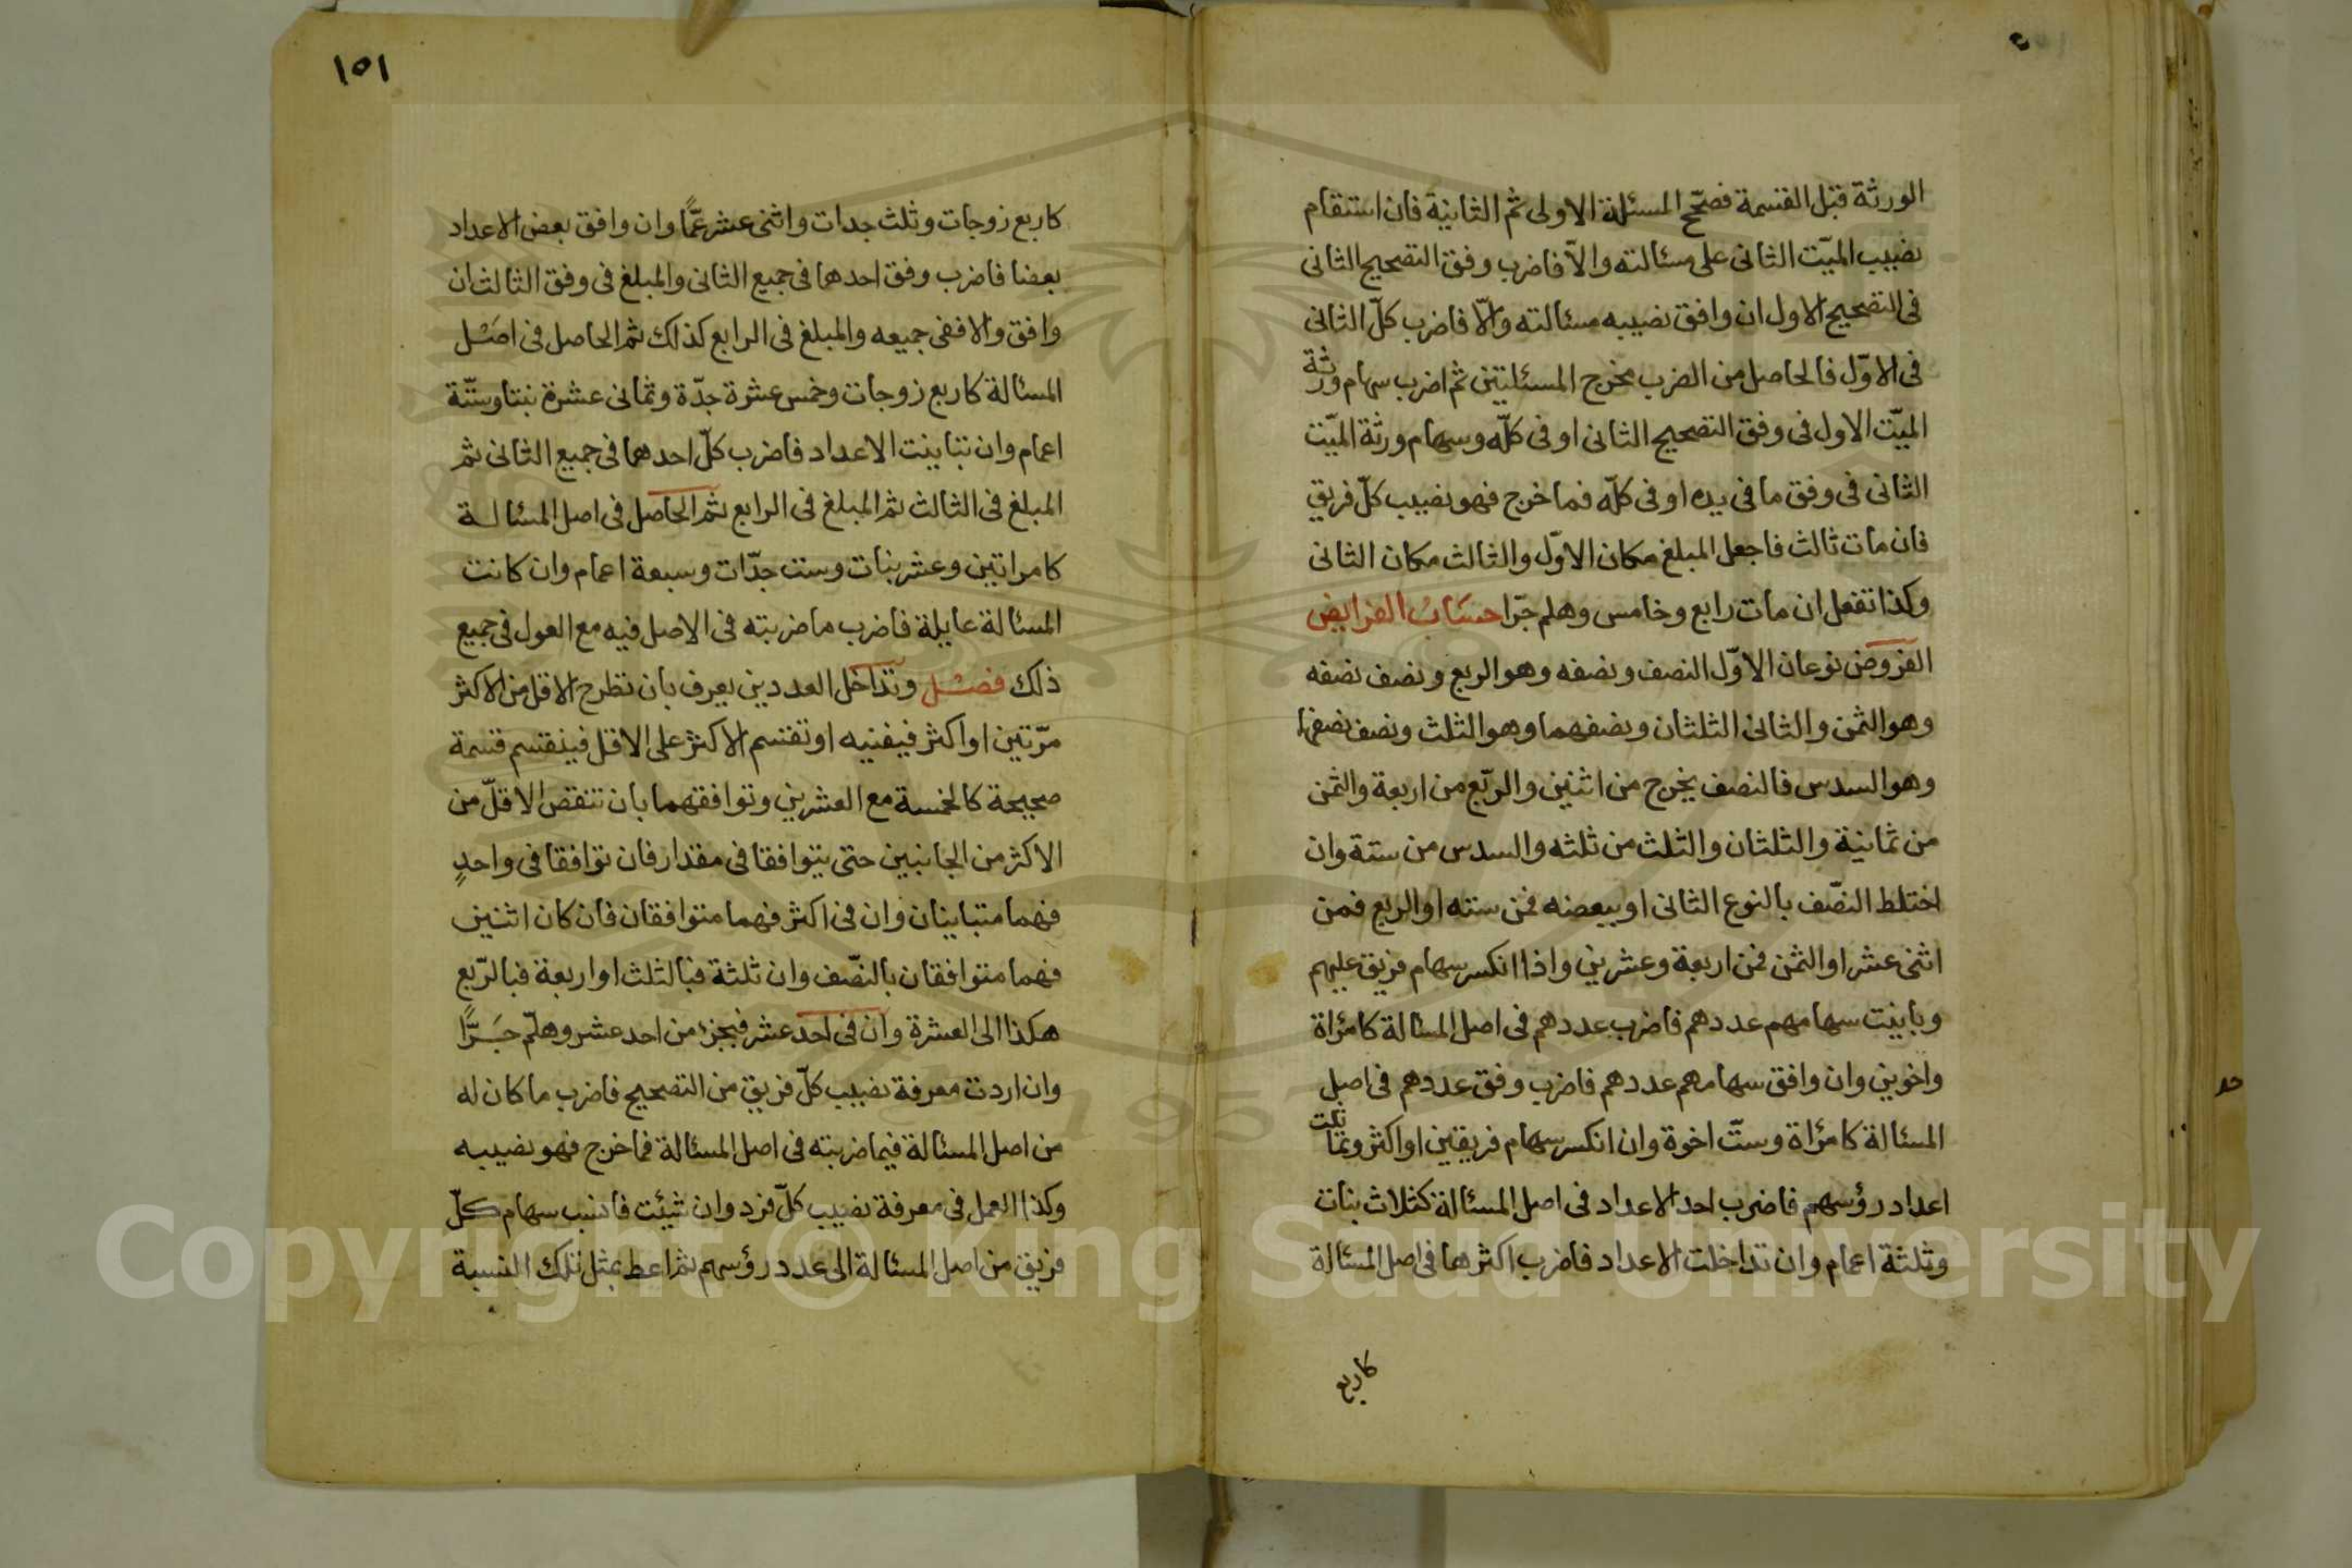 الورثة قبل القسمة فصحّح المسئلة الاولى ثم الثانية فان استقام
نصيب الميّت الثانى على مسئالته والاّ فاضرب وفق التصحيح الثانى
فى التصحيح الاول ان وافق نصيبه مسئالته والاّ فاضرب كلّ الثانى
فى الاوّل فالحاصل من الضرب مخرج المسئلتين ثم اضرب سهام ورثة
الميّت الاول فى وفق التصحيح الثانى او فى كلّه وسهام ورثة الميّت
الثانى فى وفق ما فى يده او فى كلّه فما خرج فهو نصيب كلّ فريق
فان مات ثالث فاجعل المبلغ مكان الاوّل والثالث مكان الثانى
وكذا تفعل ان مات رابع وخامس وهلم جرّا حساب الفرايض
الفروض نوعان الاوّل النصف ونصفه وهو الربع ونصف نصفه
وهو الثمن والثانى الثلثان ونصفهما وهو الثلث ونصف نصفهما
وهو السدس فالنصف يخرج من اثنين والرّبع من اربعة والثمن
من ثمانية والثلثان والثلث من ثلثه والسدس من ستة وان
اختلط النصّف بالنوع الثانى او ببعضه فمن سته او الربع فمن
اثنى عشر او الثمن فمن اربعة وعشرين واذا انكسر سهام فريق عليهم
وباينت سهامهم عددهم فاضرب عددهم فى اصل المسئالة كامرأة
واخوين وان وافق سهامهم عددهم فاضرب وفق عددهم فى اصل
المسئالة كامرأة وستّ اخوة وان انكسر سهام فريقين او اكثر وتماثلت
اعداد رؤسهم فاضرب احد الاعداد فى اصل المسئالة كثلاث بنات
وثلثة اعمام وان تداخلت الاعداد فاضرب اكثرها فى اصل المسئالة
كاربع
١٥١
كاربع زوجات وثلث جدات واثنى عشر عمًّا وان وافق بعض الاعداد
بعضا فاضرب وفق احدهما فى جميع الثانى والمبلغ فى وفق الثالث ان
وافق والا ففى جميعه والمبلغ فى الرابع كذلك ثم الحاصل فى اصل
المسئالة كاربع زوجات وخمس عشرة جدّة وثمانى عشرة بنتا وستّة
اعمام وان تباينت الاعداد فاضرب كلّ احدهما فى جميع الثانى ثم
المبلغ فى الثالث ثم المبلغ فى الرابع ثم الحاصل فى اصل المسئالة
كامراتين وعشر بنات وست جدّات وسبعة اعمام وان كانت
المسئالة عايلة فاضرب ما ضربته فى الاصل فيه مع العول فى جميع
ذلك فصل وتداخل العددين يعرف بان تطرح الاقل من الاكثر
مرّتين او اكثر فيفنيه او تقسم الاكثر على الاقل فينقسم قسمة
صحيحة كالخمسة مع العشرين وتوافقهما بان تنقص الاقلّ من
الاكثر من الجانبين حتى يتوافقا فى مقدار فان توافقا فى واحدٍ
فهما متباينان وان فى اكثر فهما متوافقان فان كان اثنين
فهما متوافقان بالنصّف وان ثلثة فبالثلث او اربعة فبالرّبع
هكذا الى العشرة وان فى احد عشر فبجزء من احد عشر وهلّم جَرًّا
وان اردت معرفة نصيب كلّ فريق من التصحيح فاضرب ما كان له
من اصل المسئالة فيما ضربته فى اصل المسئالة فما خرج فهو نصيبه
وكذا العمل فى معرفة نصيب كلّ فرد وان شئت فانسب سهام كلّ
فريق من اصل المسئالة الى عدد رؤسهم ثم اعط بمثل تلك النسبة
Copyright © King Saud University
195